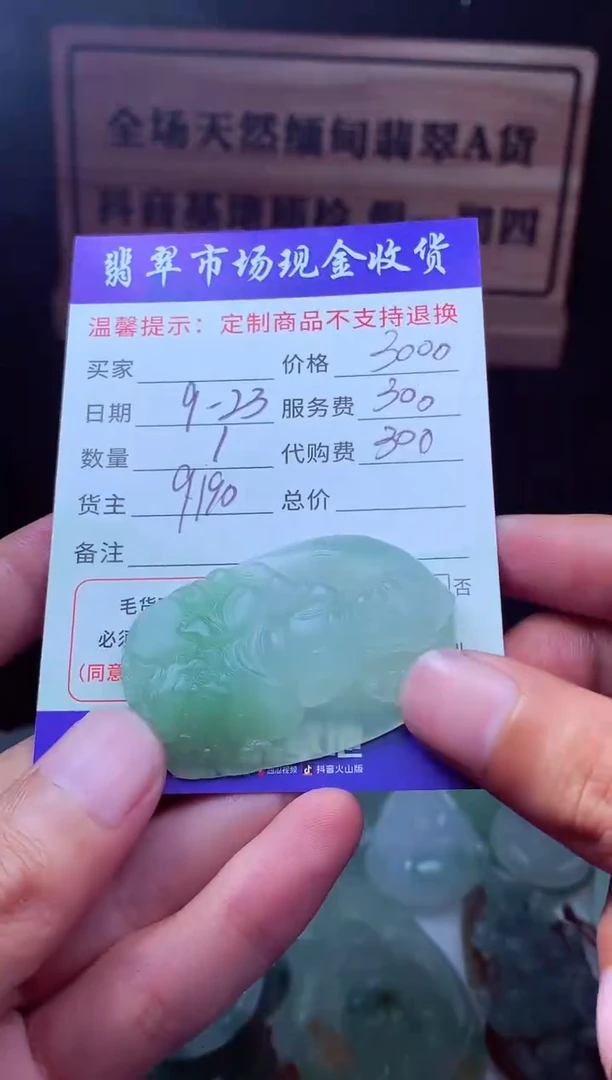 全场天然缅甸翡翠A货
抖音基地质检 假一罚四
翡翠市场现金收货
温馨提示：定制商品不支持退换
买家 价格 3000
日期 9-23 服务费 300
数量 1 代购费 300
货主 9190 总价
备注
毛货 否
必须
(同意
抖音火山版